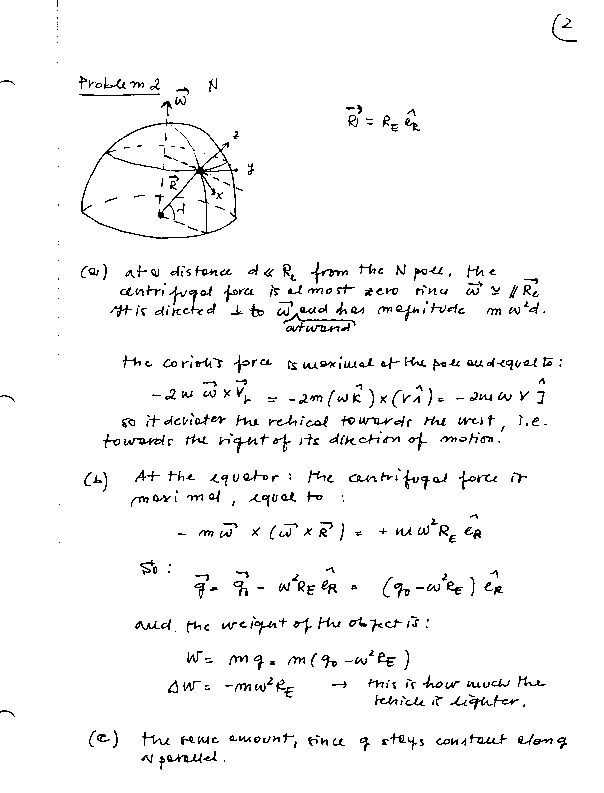 (2
Problem 2
N
ω⃗
R⃗ = R_E ê_R
z
y
R⃗
x
λ
(a) at a distance d « R_E from the N pole, the
centrifugal force is almost zero since ω⃗ ≃ ∥ R⃗_E
It is directed ⊥ to ω⃗ and has magnitude m ω²d.
outward
the coriolis force is maximal at the pole and equal to:
−2m ω⃗ × v⃗_r = −2m (ω k̂) × (v î) = −2m ω v ĵ
so it deviates the vehical towards the west, i.e.
towards the right of its direction of motion.
(b) At the equator: the centrifugal force is
maximal, equal to :
− m ω⃗ × (ω⃗ × R⃗) = + m ω² R_E ê_R
So :
g⃗ = g⃗₀ − ω² R_E ê_R = (g₀ − ω² R_E) ê_R
and the weight of the object is :
W = m g = m (g₀ − ω² R_E)
ΔW = − m ω² R_E → this is how much the
vehicle is lighter.
(c) the same amount, since g stays constant along
N parallel.